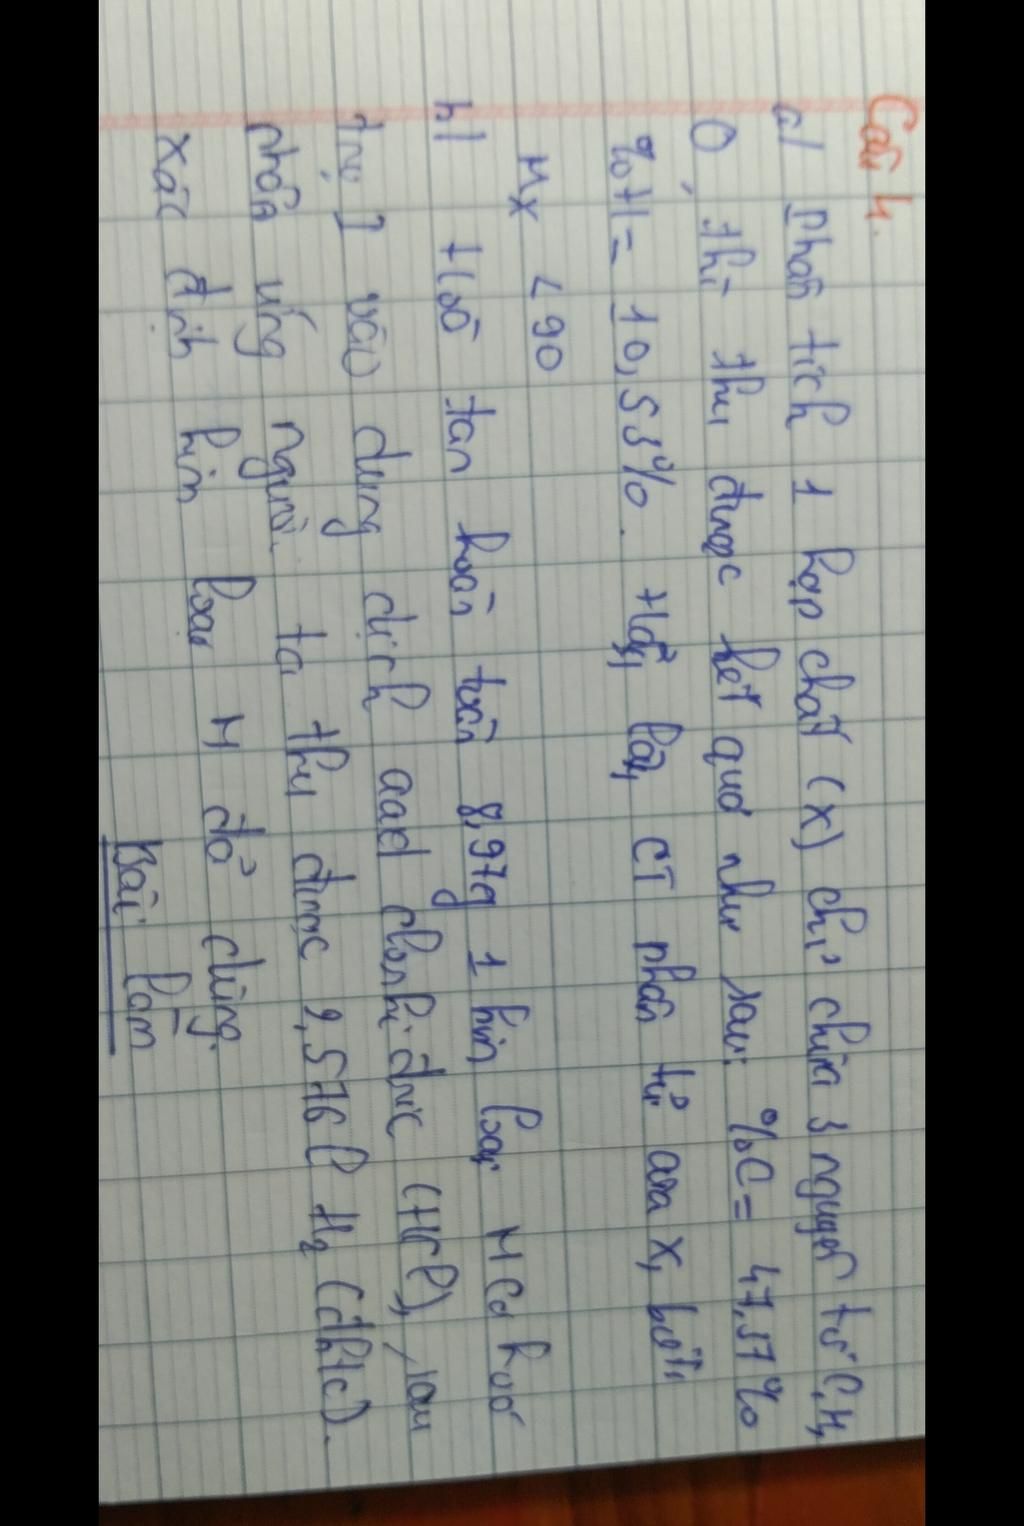 Câu 4.
a/ Phân tích 1 hợp chất (X) chỉ chứa 3 nguyên tố C, H,
O, thì thu được kết quả như sau: %C = 47,37%
%H = 10,53%. Hãy lập CT phân tử của X, biết
Mx < 90
b/ Hoà tan hoàn toàn 8,97g 1 kim loại M (có hoá
trị I) vào dung dịch axid clohiđric (HCl), sau
phản ứng người ta thu được 2,576l H₂ (đktc).
Xác định kim loại M đã dùng.
Bài làm